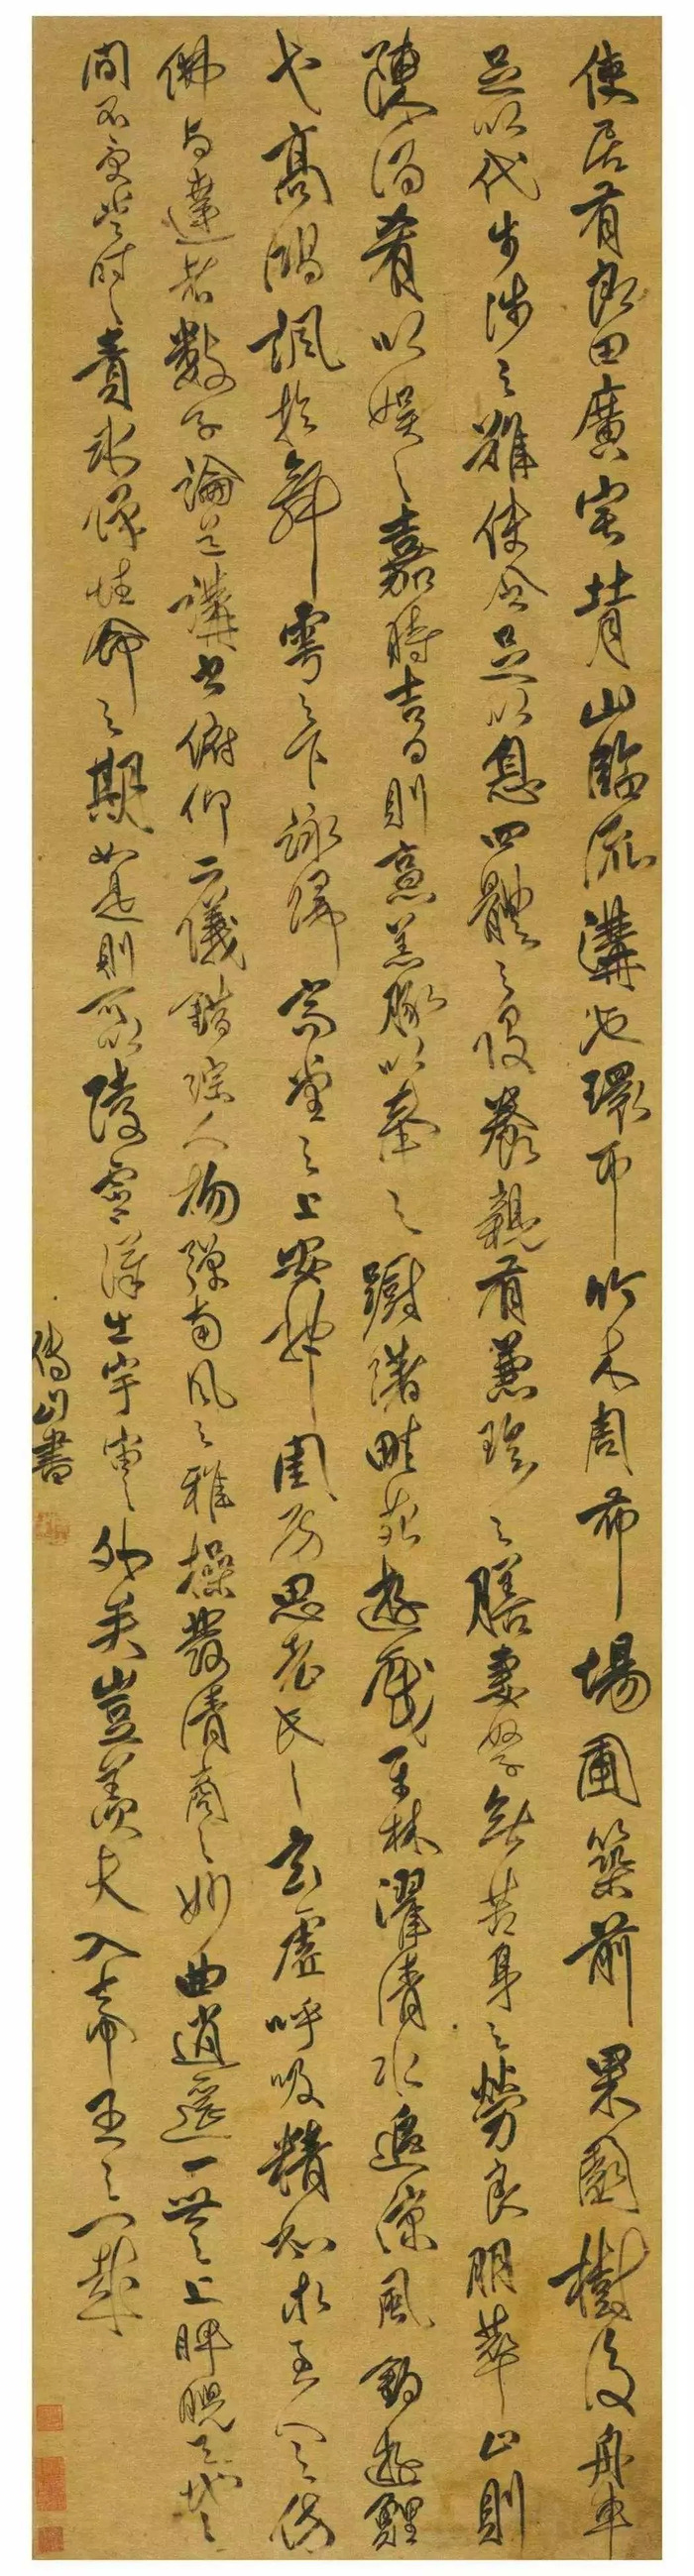 使居有良田廣宅背山臨流溝池環帀竹木周布場圃築前果園樹後舟車
足以代步涉之難使令足以息四體之役養親有兼珍之膳妻孥無苦身之勞良朋萃止則
陳酒肴以娛之嘉時吉日則烹羔豚以奉之躕躇畦苑遊戲平林濯清水追涼風釣遊鯉
弋高鴻諷於舞雩之下詠歸高堂之上安神閨房思老氏之玄虛呼吸精和求至人之仿
佛與達者數子論道講書俯仰二儀錯綜人物彈南風之雅操發清商之妙曲逍遙一世之上睥睨天地之
間不受當時之責永保性命之期如是則可以陵霄漢出宇宙之外矣豈羨夫入帝王之門哉
傅山書